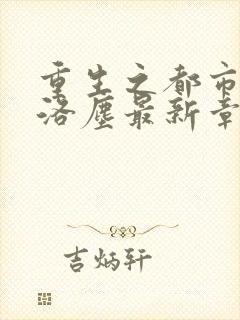 重生之都市
洛尘最新章
吉炳轩